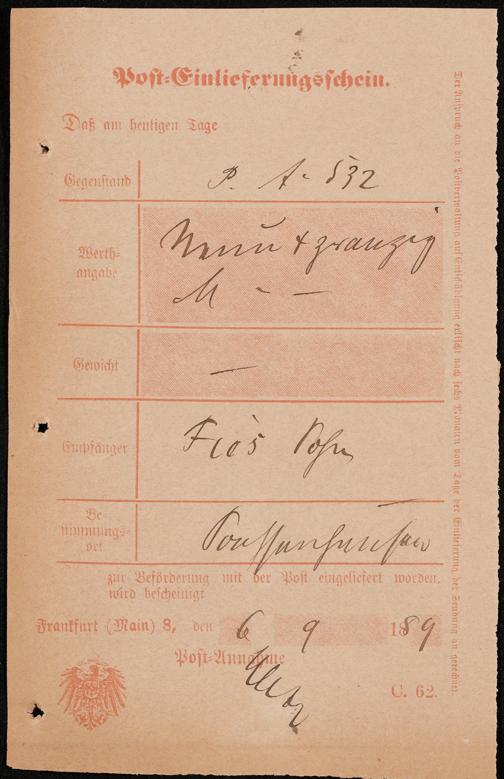 Post-Einlieferungsschein.
Daß am heutigen Tage
Gegenstand P. A. 532
Werth-
angabe
Neun & zwanzig
M - —
Gewicht —
Empfänger Sohn
Be-
stimmungs-
ort
zur Beförderung mit der Post eingeliefert worden,
wird bescheinigt
Frankfurt (Main) 8, den 6 9 1889
Post-Annahme
C. 62.
Der Anspruch an die Postverwaltung auf Entschädigung erlischt nach sechs Monaten vom Tage der Einlieferung der Sendung an gerechnet.